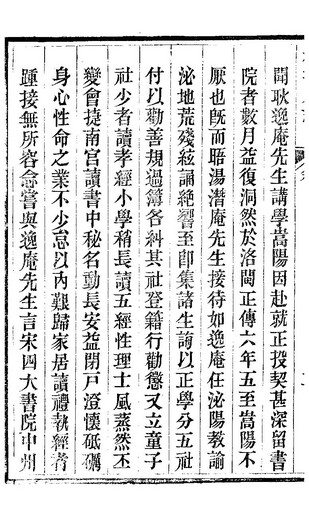 聞耿逸庵先生講學嵩陽因赴就正投契甚深留書
院者數月益復洞然於洛閩正傳六年五至嵩陽不
厭也旣而晤湯潛庵先生接待如逸庵任泌陽教諭
泌地荒殘絃誦絕響至卽集諸生諭以正學分五社
付以勸善規過簿各糾其社登籍行勸懲又立童子
社少者讀孝經小學稍長讀五經性理士風蒸然丕
變會捷南宮讀書中秘名動長安益閉戸澄懷砥礪
身心性命之業不少怠以內艱歸家居讀禮執經者
踵接無所容念嘗與逸庵先生言宋四大書院中州